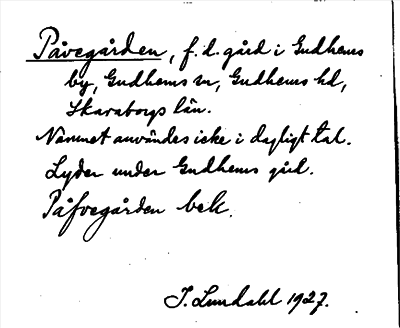 Påvegården, f. d. gård i Gudhems
by, Gudhems sn, Gudhems hd,
Skaraborgs län.
Namnet användes icke i dagligt tal.
Lyder under Gudhems gård.
Påfvegården bek.
J. Lundahl 1927.